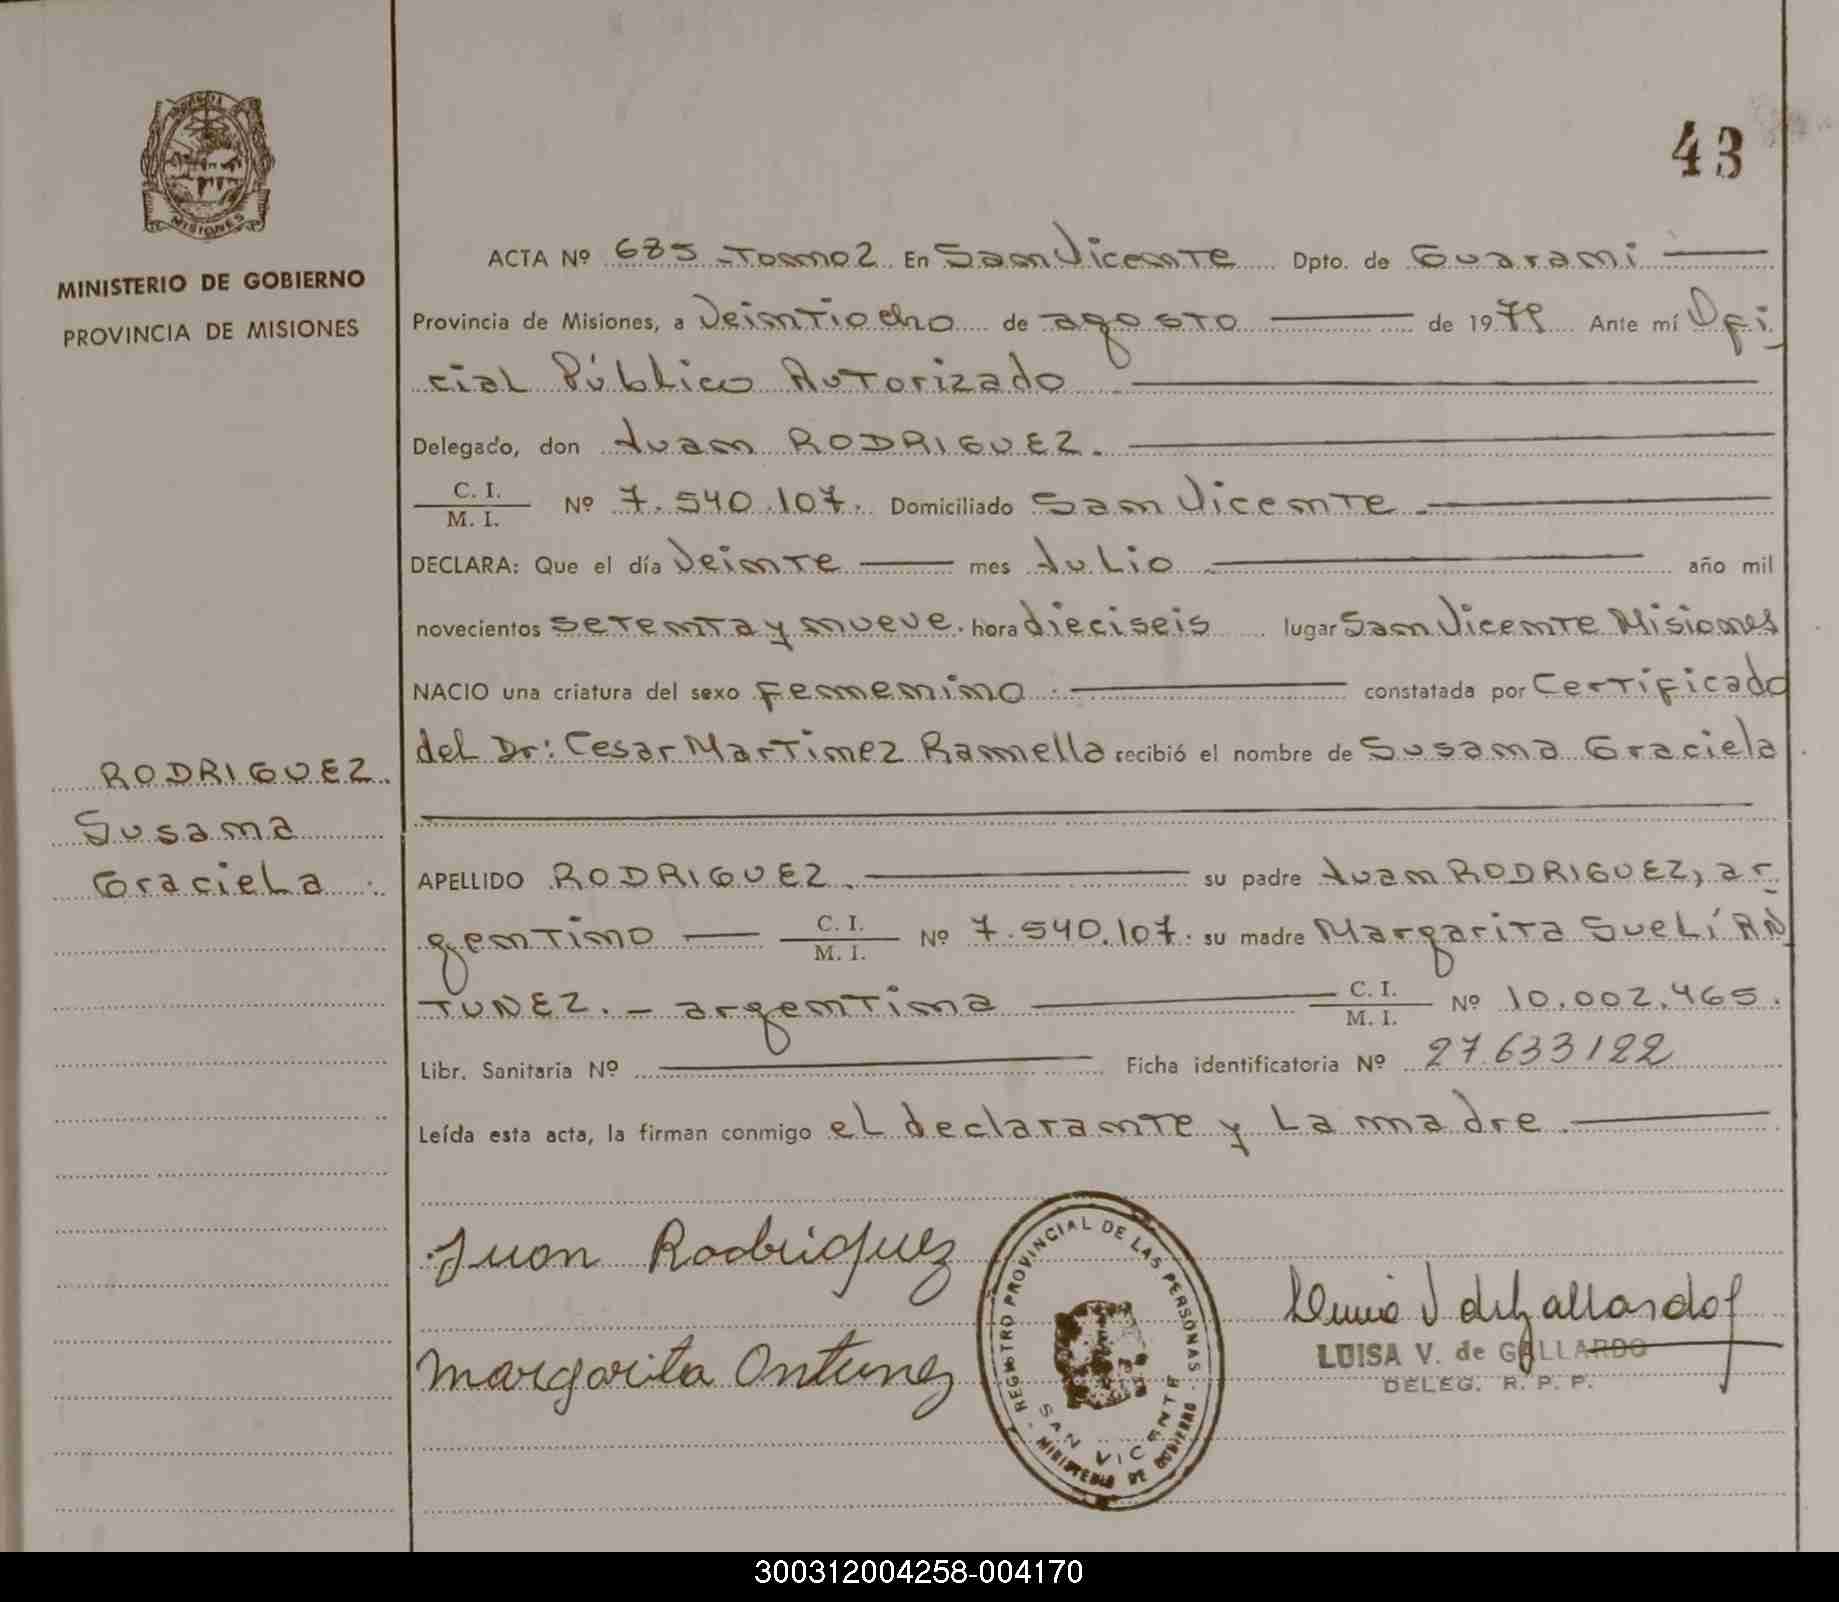 43
MISIONES
MINISTERIO DE GOBIERNO
PROVINCIA DE MISIONES
ACTA Nº 685 - Tomo 2. En San Vicente Dpto. de Guarani
Provincia de Misiones, a Veintiocho de agosto de 1979 Ante mí Ofi
cial Público Autorizado
Delegado, don Juan RODRIGUEZ.
C. I.
M. I. Nº 7.540.107. Domiciliado San Vicente.
DECLARA: Que el día Veinte mes Julio año mil
novecientos setenta y nueve. hora dieciseis lugar San Vicente Misiones
NACIO una criatura del sexo femenino. constatada por Certificado
del Dr: Cesar Martinez Ramella recibió el nombre de Susana Graciela
RODRIGUEZ.
Susana
Graciela.
APELLIDO RODRIGUEZ. su padre Juan RODRIGUEZ, ar
gentino C. I.
M. I. Nº 7.540.107. su madre Margarita Suelí AN
TUNEZ. - argentina C. I.
M. I. Nº 10.002.465.
Libr. Sanitaria Nº Ficha identificatoria Nº 27.633122
Leída esta acta, la firman conmigo el declarante y La madre.
Juan Rodriguez
Margarita Antunez
REGISTRO PROVINCIAL DE LAS PERSONAS
SAN VICENTE
MINISTERIO DE GOBIERNO
V de Gallardo
LUISA V. de GALLARDO
DELEG. R. P. P.
300312004258-004170